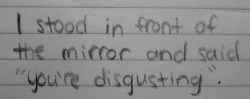 I stood in front of
the mirror and said
"you're disgusting".